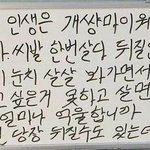 인생은 개상마이웨
씨발 한번살다 뒤질인
눈치 살살 봐가면서
고 싶은거 못하고 살면
얼마나 억울합니까
당장 뒤질수도 있는데